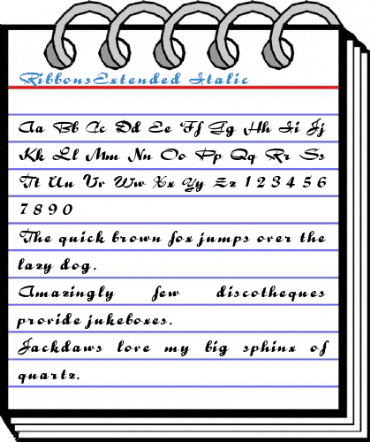 RibbonsExtended Italic
Aa Bb Cc Dd Ee Ff Gg Hh Ii Jj
Kk Ll Mm Nn Oo Pp Qq Rr Ss
Tt Uu Vv Ww Xx Yy Zz 1 2 3 4 5 6
7 8 9 0
The quick brown fox jumps over the
lazy dog.
Amazingly few discotheques
provide jukeboxes.
Jackdaws love my big sphinx of
quartz.